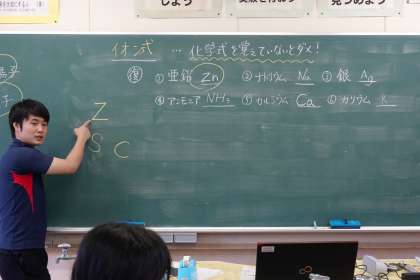 しよう
見つめよう
イオン式 … 化学式を覚えていないとダメ!
復 ① 亜鉛 Zn ② ナトリウム Na ③ 銀 Ag
④ アンモニア NH₃ ⑤ カルシウム Ca ⑥ カリウム K
Z
S C
子